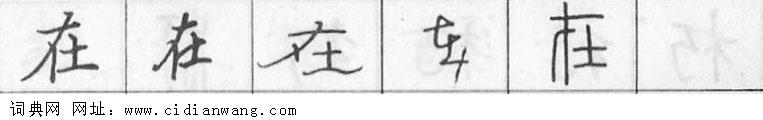 在 在 在 在 在
词典网 网址：www.cidianwang.com